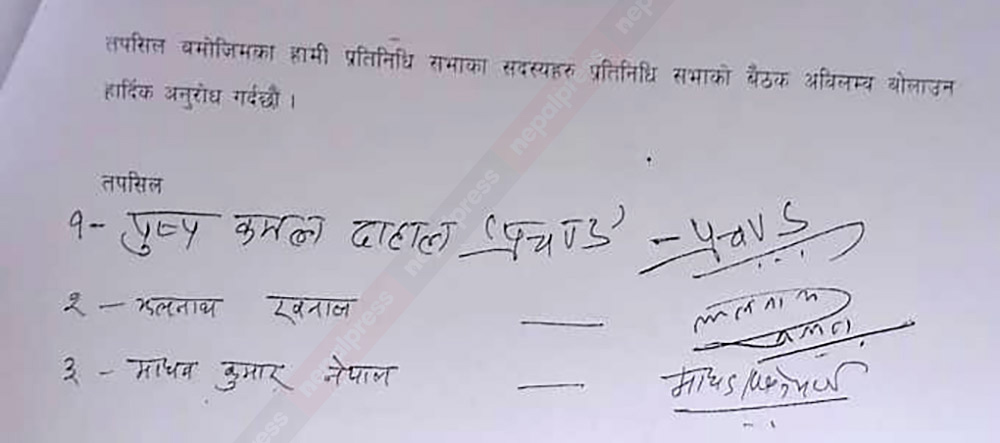 तपसिल बमोजिमका हामी प्रतिनिधि सभाका सदस्यहरु प्रतिनिधि सभाको बैठक अविलम्ब बोलाउन
हार्दिक अनुरोध गर्दछौ ।
तपसिल
१- पुष्प कमल दाहाल 'प्रचण्ड' - प्रचण्ड
२ - झलनाथ खनाल —
३ - माधव कुमार नेपाल —
nepalpress